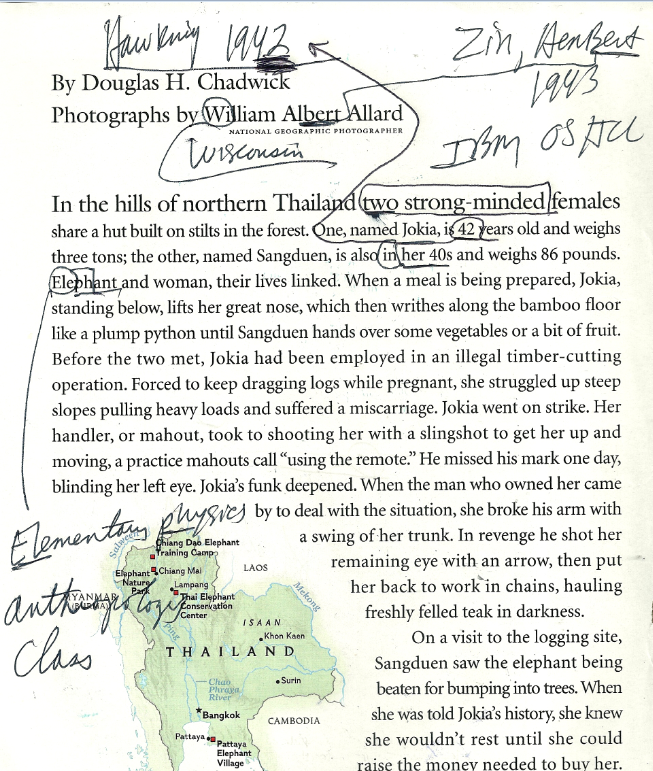 Hawking 1942
Zin, HenBert
1943
IBM OS HU
By Douglas H. Chadwick
Photographs by William Albert Allard
NATIONAL GEOGRAPHIC PHOTOGRAPHER
Wisconsin
In the hills of northern Thailand two strong-minded females
share a hut built on stilts in the forest. One, named Jokia, is 42 years old and weighs
three tons; the other, named Sangduen, is also in her 40s and weighs 86 pounds.
Elephant and woman, their lives linked. When a meal is being prepared, Jokia,
standing below, lifts her great nose, which then writhes along the bamboo floor
like a plump python until Sangduen hands over some vegetables or a bit of fruit.
Before the two met, Jokia had been employed in an illegal timber-cutting
operation. Forced to keep dragging logs while pregnant, she struggled up steep
slopes pulling heavy loads and suffered a miscarriage. Jokia went on strike. Her
handler, or mahout, took to shooting her with a slingshot to get her up and
moving, a practice mahouts call “using the remote.” He missed his mark one day,
blinding her left eye. Jokia’s funk deepened. When the man who owned her came
by to deal with the situation, she broke his arm with
a swing of her trunk. In revenge he shot her
remaining eye with an arrow, then put
her back to work in chains, hauling
freshly felled teak in darkness.
On a visit to the logging site,
Sangduen saw the elephant being
beaten for bumping into trees. When
she was told Jokia’s history, she knew
she wouldn’t rest until she could
raise the money needed to buy her.
Elementary physics
anthropologic
Class
Salween
Chiang Dao Elephant
Training Camp
Elephant
Nature
Park
Chiang Mai
Lampang
Thai Elephant
Conservation
Center
MYANMAR
(BURMA)
LAOS
Mekong
Ping
ISAAN
Khon Kaen
THAILAND
Surin
Chao
Phraya
River
Bangkok
CAMBODIA
Pattaya
Pattaya
Elephant
Village